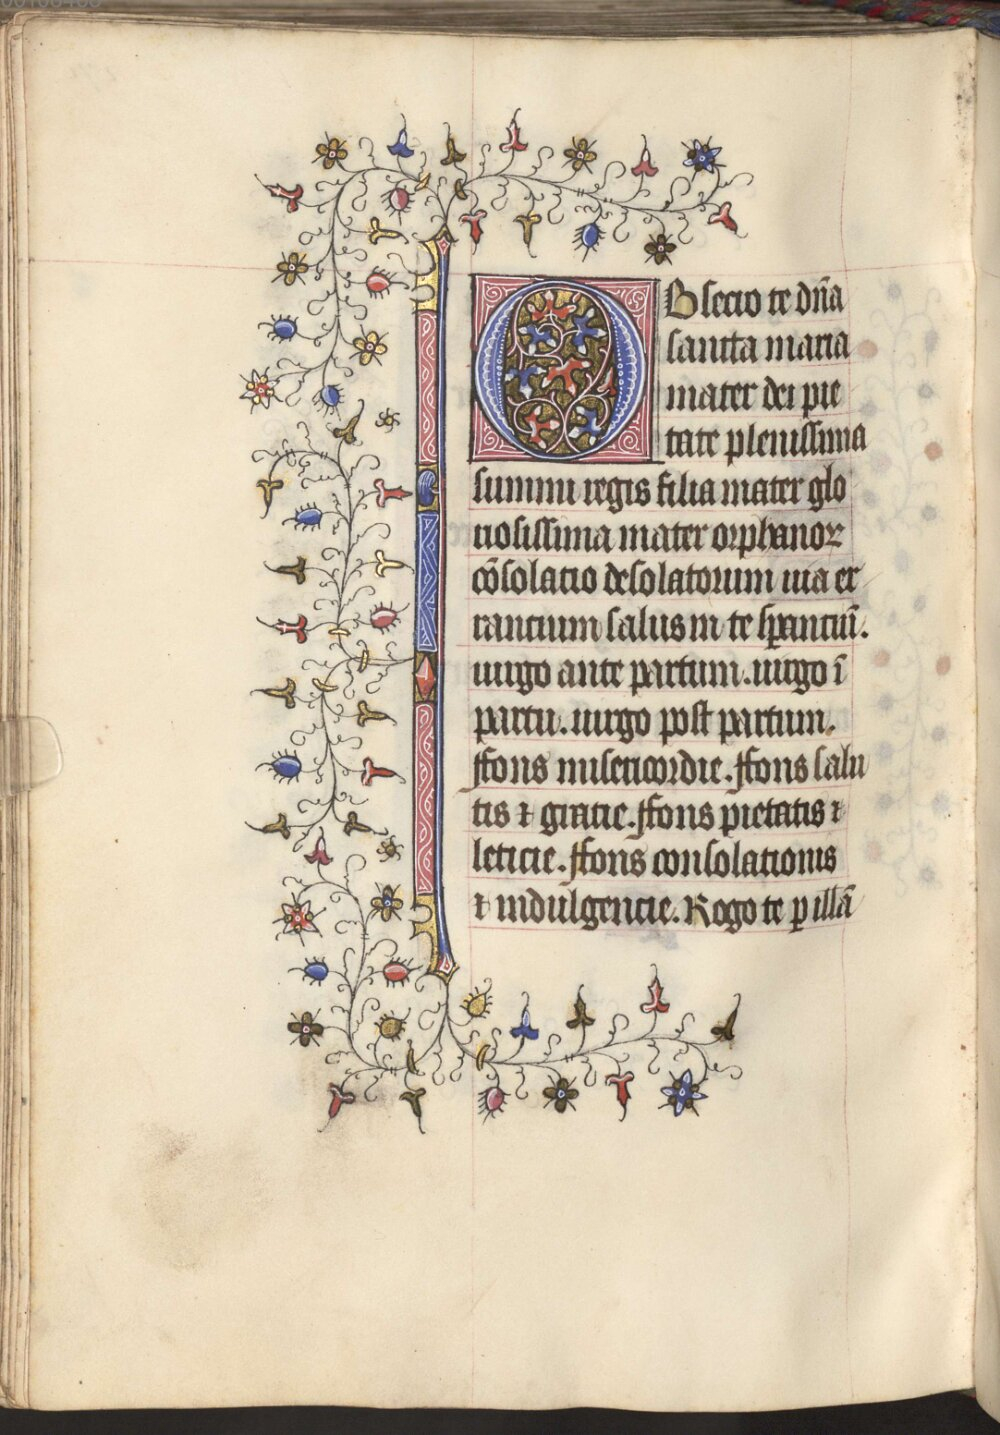 Obsecro te dn̄a
sancta maria
mater dei pie
tate plenissima
summi regis filia mater glo
riosissima mater orphanoꝝ
cōsolacio desolatorum uia er
rancium salus in te sꝑanciū.
uirgo ante partum. uirgo ī
partu. uirgo post partum.
ffons misericordie. ffons salu
tis ⁊ gracie. ffons pietatis ⁊
leticie. ffons consolationis
⁊ indulgencie. Rogo te ꝑ illā